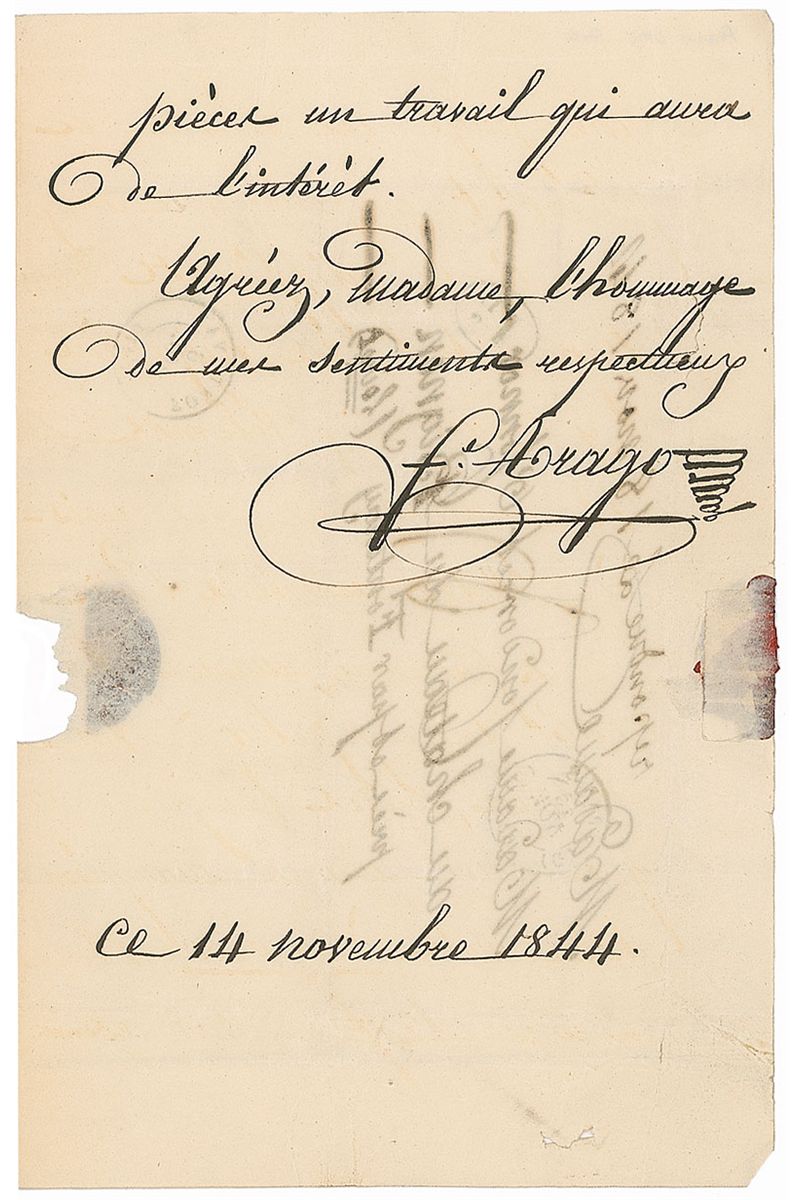 pièces un travail qui aura
de l'intérêt.
Agréez, Madame, l'hommage
de mes sentiments respectueux
f. Arago
ce 14 novembre 1844.